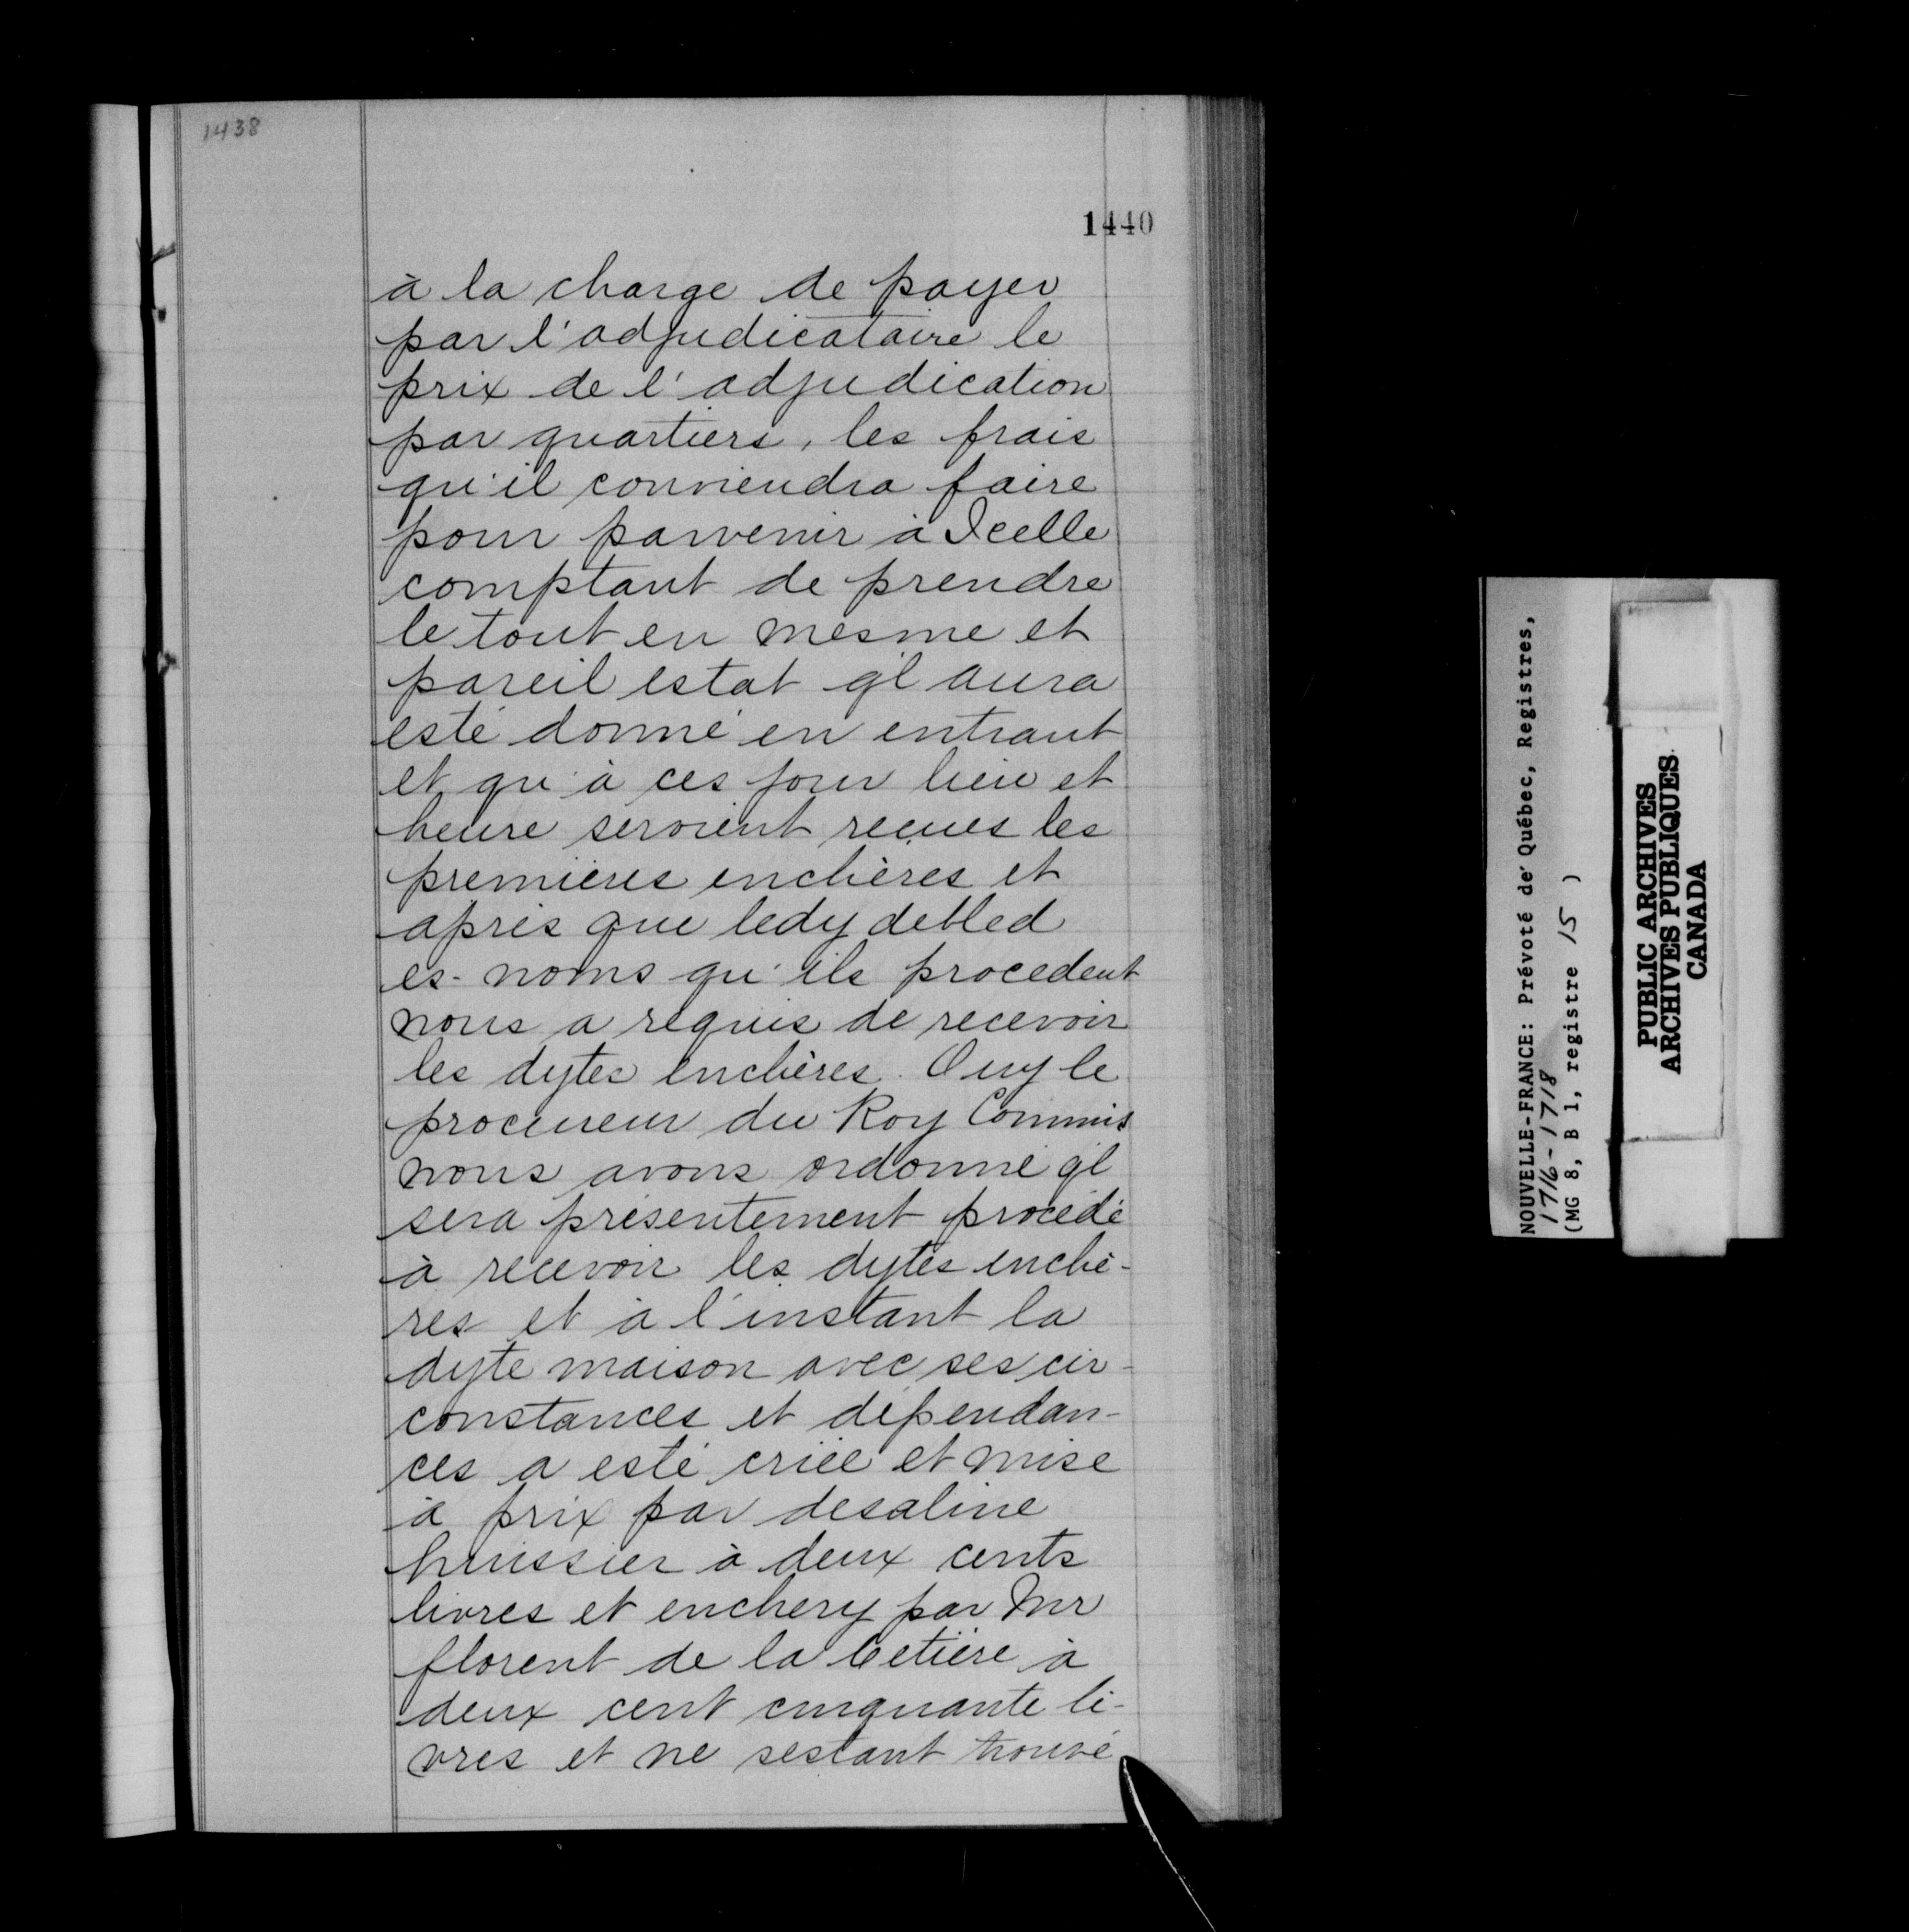 1438
1440
à la charge de payer
par l'adjudicataire le
prix de l'adjudication
par quartiers, les frais
qu'il conviendra faire
pour parvenir à Icelle
comptant de prendre
le tout en mesme et
pareil estat ql aura
esté donné en entrant
et qu'à ces jour lieu et
heure seroient reçues les
premières enchères et
après que ledy debled
es-noms qu'ils procedent
nous a requis de recevoir
les dytes enchères. Ouy le
procureur du Roy Commis
nous avons ordonné ql
sera présentement procédé
à recevoir les dytes enchè-
res et à l'instant la
dyte maison avec ses cir-
constances et dépendan-
ces a esté criée et mise
à prix par desaline
huissier à deux cents
livres et enchery par Mr
florent de la Cetière à
deux cent cinquante li-
vres et ne sestant trouvé
NOUVELLE-FRANCE: Prévoté de Québec, Registres,
1716-1718
(MG 8, B 1, registre 15 )
PUBLIC ARCHIVES
ARCHIVES PUBLIQUES
CANADA